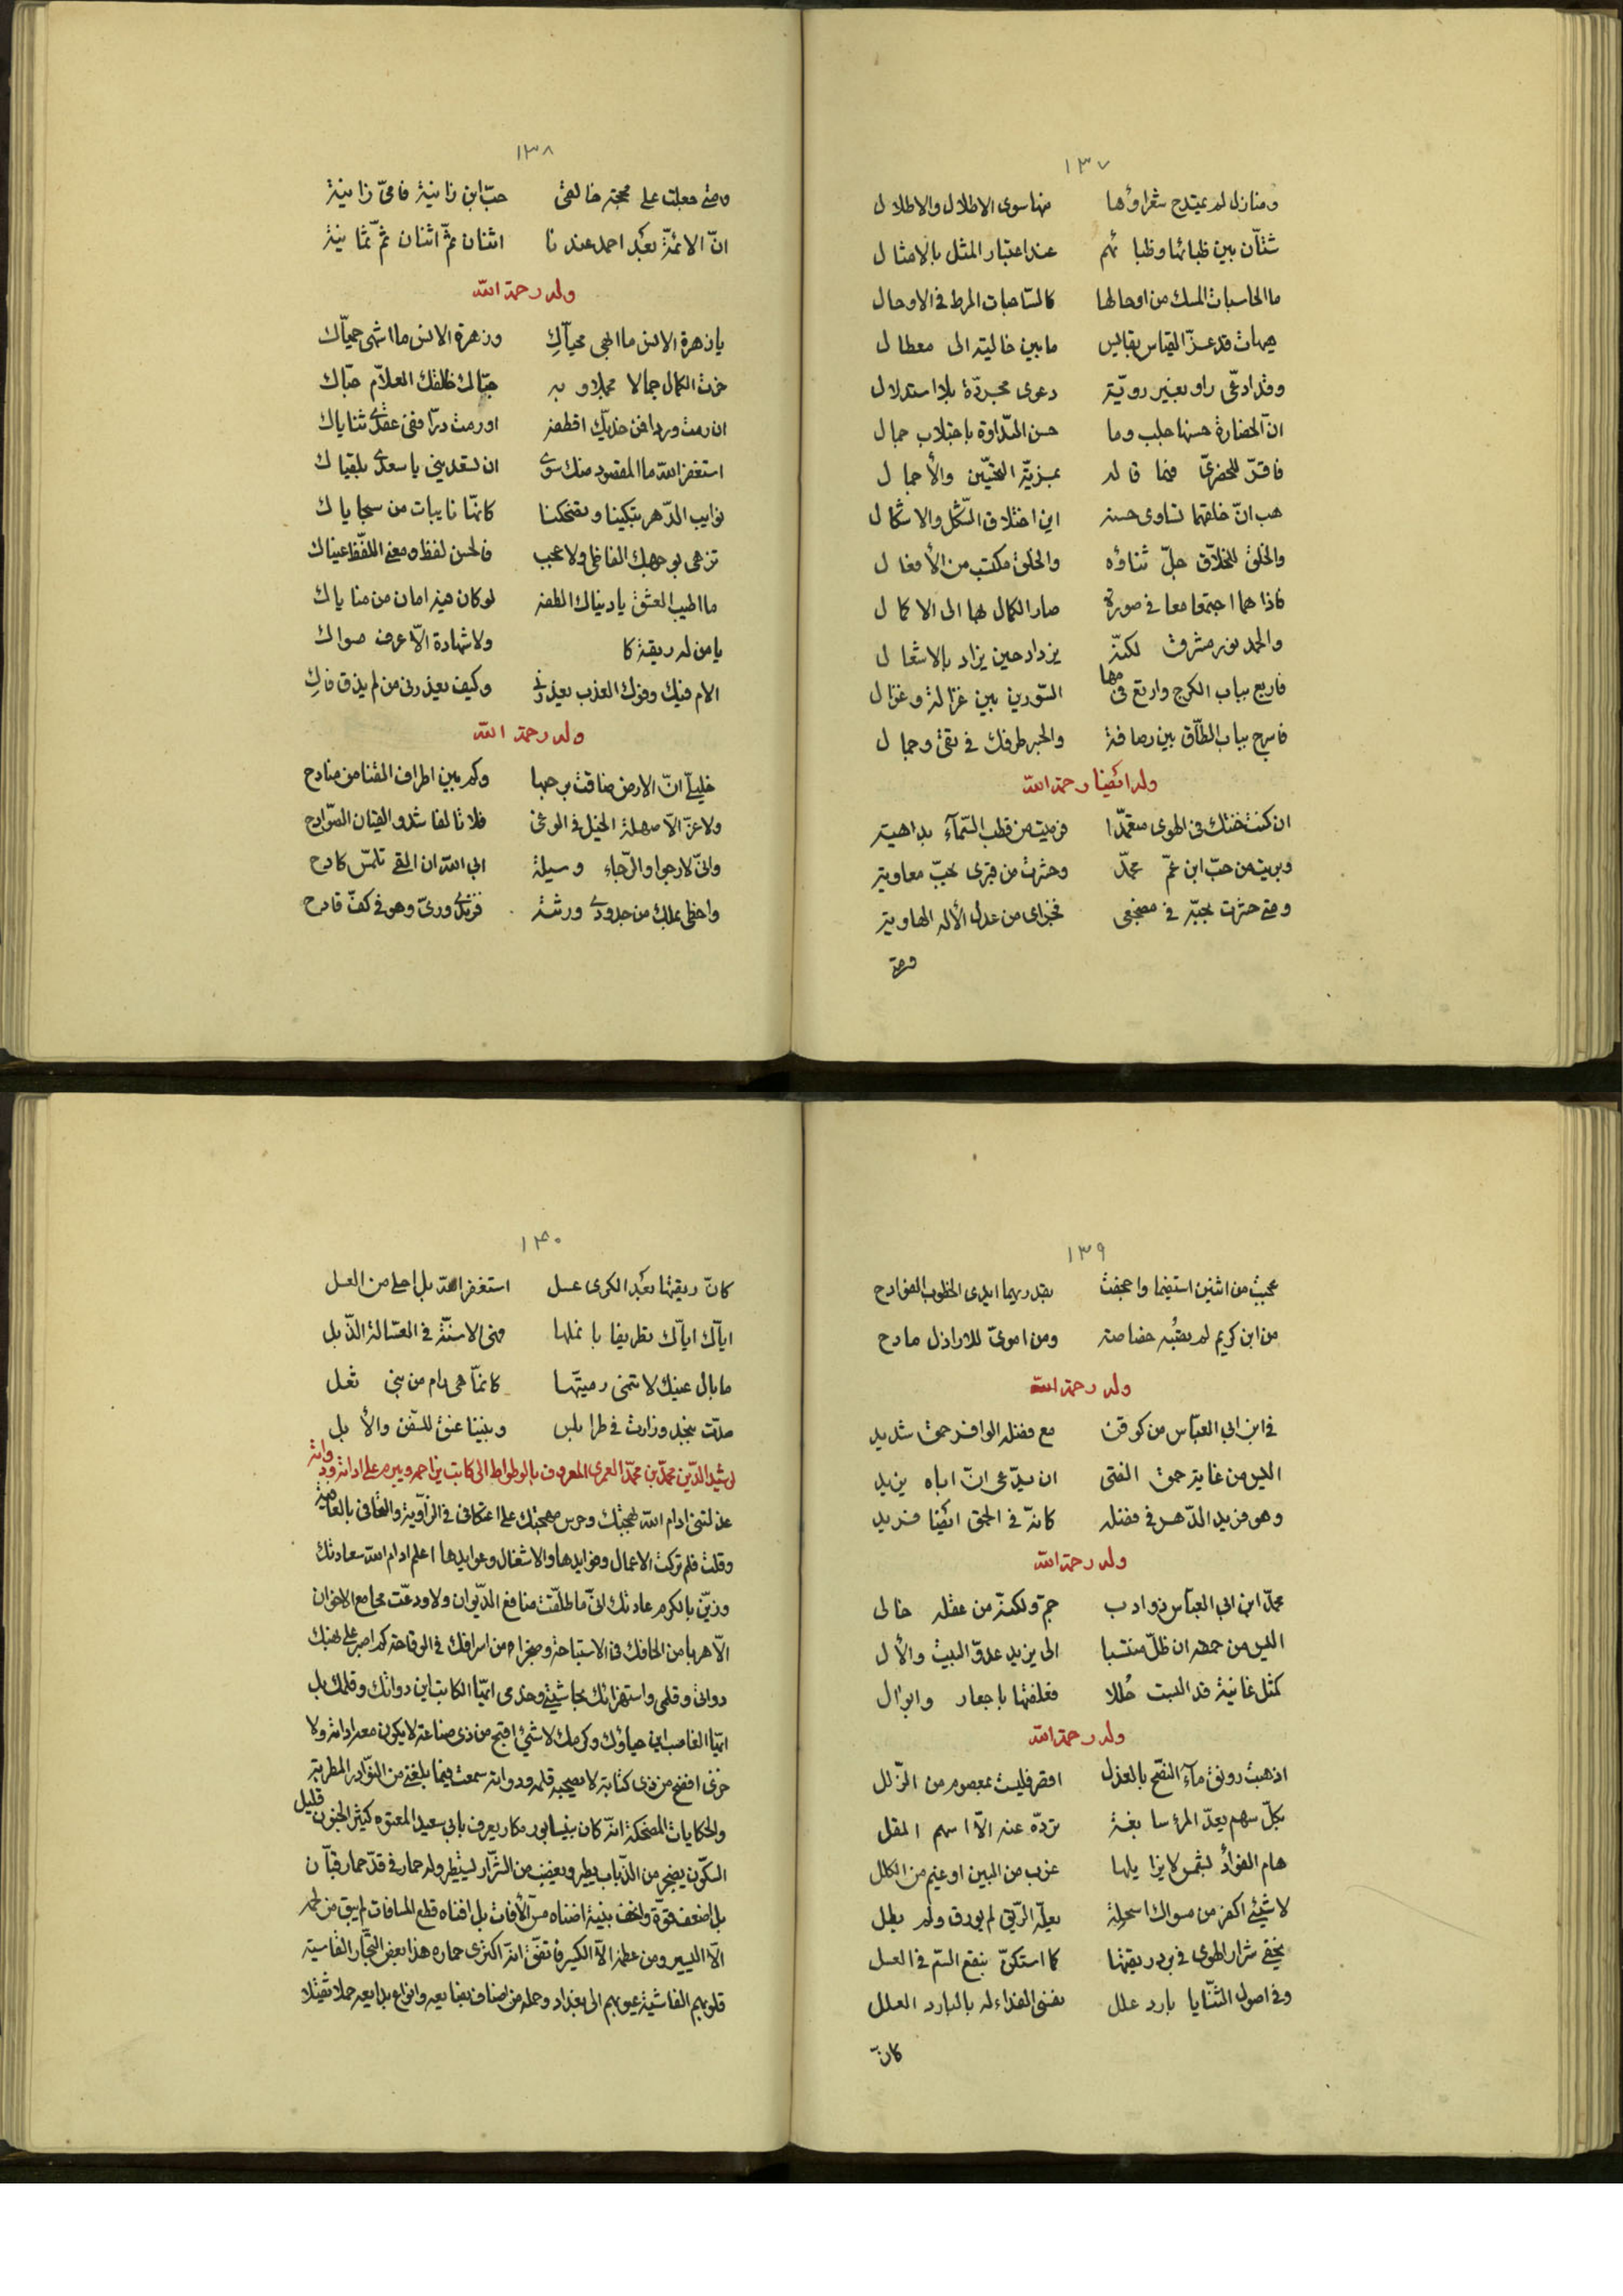 ١٣٧
ومنازل لم يمتدح شعراؤها منها سوى الاطلال والاطلال
شتّان بين ظبائنا وظبائهم عند اعتبار المثل بالامثال
ما الحاسبات المسك من اوحالها كالساحبات المرط فى الاوحال
هيهات قد عزّ القياس بقابس مابين خالية الى معطال
وقد ادعى راو بغير رويّة دعوى مجرّدة بلا استدلال
انّ الحضارة حسنها جلب وما حسن البداوة باجتلاب جمال
فاقرّ للحضرىّ فيما قاله بمزيّة البختىّ والأجمال
هب انّ خلقهما تساوى حسنه اين اختلاف الشّكل والاشكال
والخلق للخلّاق جلّ ثناؤه والخلق مكتسب من الأفعال
فاذا هما اجتمعا معا فى صورة صار الكمال بها الى الاكمال
والحمد نور مشرق لكنّه يزداد حين يزاد بالاشعال
فاربع بباب الكرخ وارتع فى مها السّورين بين غزالة وغزال
فاسرح بباب الطّاق بين رصافة والجسر طرفك فى نقى وجمال
وله ايضا رحمة الله
ان كنت خنتك فى الهوى متعمّدا فرميت من قطب السّمآء بداهية
وبريت من حبّ ابن عمّ محمّد وحشرت من قبرى بحبّ معاوية
ومتى حشرت بحبّه فى مضجعى فجزاى من عدل الأله الهاوية
ومتى
١٣٨
ومتى جعلت على محجّة خالفى حبّ ابن زانية فامىّ زانية
انّ الائمّة بعد احمد عندنا اثنان ثمّ اثنان ثمّ ثمانية
وله رحمة الله
يا زهرة الانس ما ابهى محيّاكِ وزهرة الانس ما اشهى حميّاك
حزت الكمال جمالا مجملا وبه حبّا لك خالقك العلاّم حبّاك
ان رمت وردا فمن خدّيك اقطفه او رمت درّا ففى عقدى ثناياك
استغفر الله ما المقصود منك سوى ان تسعدينى يا سعدى بلقياك
نوايب الدّهر تبكينا وتضحكنا كانّها نايبات من سجاياك
تزهى بوجهك الفاظى ولا عجب فالحسن لفظ ومعنى اللفظ عيناك
ما اطيب العشق يا دنياك الطفه لوكان فيه امان من مناياك
يا من له ريقة كا ولا شهادة الّا عرف مسواك
الام فيك وفوك العذب يعذرنى وكيف يعذرنى من لم يذق فاكِ
وله رحمة الله
خليلىّ انّ الارض ضاقت برحبها وكم بين اطراف القنا من منادح
ولا عزّ الّا صهلة الخيل فى الوغى فلا تالفا شدو القيان الصّوادح
وانّى لارجوا والرّجاء وسيلة ابى الله ان القى تلمّس كادح
واحظى بملك من جدودى ورثته فزندى ورىّ وهو فى كفّ قادح
١٣٩
عجبت من اثنين استضيما واجحفت بقدريهما ايدى الخطوب الفوادح
من ابن كريم لم تصبه خصاصة ومن اموىّ للاراذل مادح
وله رحمة الله
فى ابن ابى العبّاس من كوفن مع فضله الوافر حمق شديد
اليس من غاية حمق الفتى ان يدّعى انّ اباه يزيد
وهو فريد الدّهر فى فضله كانّه فى الحمق ايضا فريد
وله رحمة الله
محمّد ابن ابى العبّاس ذو ادب جمّ ولكنّه من عقله خالى
اليس من حمقه ان ظلّ منتسبا الى يزيد عدوّ البيت والأل
كمثل غانية قد البست حُللا فغلّفتها باجعار وابوال
وله رحمة الله
اذهبت رونق ماء النّصح بالعذل اقصر فليت بمعصوم من الزّلل
بكلّ سهم يعدّ المرٔ سابغة تردّه عنه الّا اسهم المقل
هام الفؤاد بشمس لا يزايلها غرب من البين او غيم من الكلل
لا شيئى اكفر من مسواك اسحلة يعلّه الرّيق لم يورق ولم يطل
يخفى شرار الهوى فى برد ريقتها كما استكنّ بنقع السّم فى العسل
وفى اصول الثّنايا بارد علل يغنى الفداء له بالبارد العلل
كانّ
١٤٠
كانّ ريقتها بعد الكرى عسل استغفر الله بل احلى من العسل
ايّاك ايّاك تطريفا بانملها فهى الاسنّة فى العسّالة الذّبل
ما بال عينيك لا تنمى رميّتها كانّما هى رام من بنى ثعل
صدّت بنجد وزارت فى طرابلس وبيننا عنق للسّفن والأبل
لرشيد الدّين محمّد بن محمّد العمرى المعروف بالوطواط الى كاتب يزاحمه ويبرم على اداته ودواته
عذلتنى ادام الله بهجتك وحرس مهجتك على اعتكافى فى الزّاوية والتفافى بالعافية
وقلت فلم تركت الاعمال وفوايدها والاشغال وعوايدها اعلم ادام الله سعادتك
وزيّن بالكرم عادتك انّى ما طلّقت منافع الدّيوان ولا ودعّت مجامع الاخوان
الّا هربا من الحافك فى الاستباحة وضجرا من اسرافك فى الوقاحة كم اصبر على نهبك
دواتى وقلمى واستهزائك بحاشيتى وخدمى ايّها الكاتب اين دواتك وقلمك بل
ايّها الغاصب اين حياؤك وكرمك لا شئ اقبح من ذى صناعة لا يكون معه اداته ولا
خزى افضح من ذى كتابة لا يصحبه قلمه ودواته سمعت فيما بلغنى من النّوادر المطربة
والحكايات المضحكة انّه كان بنيسابور مكار يعرف بابى سعيد المعتوه كثير الجنون قليل
السّكون يضجر من الذّباب يطير ويغضب من الشّرار يستطير وله حمار فى قدّ حمار قبّان
بل اضعف قوّة وانحف بنية اضناه مسّ الأفات بل افناه قطع المسافات لم يبق من لحمه
الّا اليسير ومن عظمه الّا الكسير فاتّفق انّه اكترى حماره هذا بعض التجّار القاسية
قلوبهم الفاشية عيوبهم الى بغداد وحمله من اصناف بضايعه وانواع بدايعه حملا ثقيلا